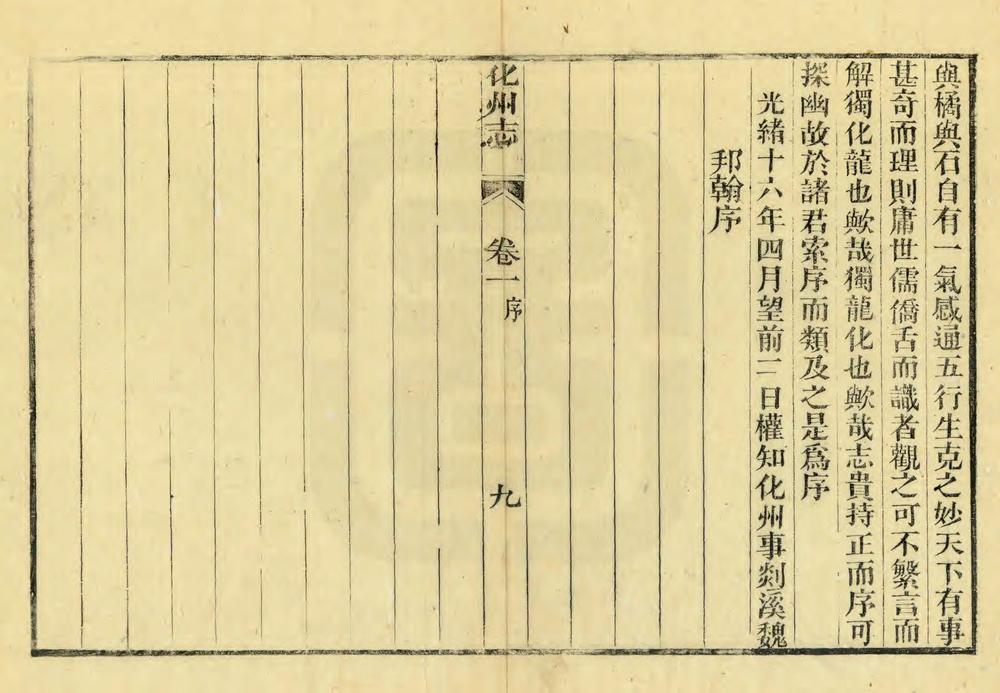 與橘與石自有一氣感通五行生克之妙天下有事
甚奇而理則庸世儒僑舌而識者觀之可不繁言而
解獨化龍也歟哉獨龍化也歟哉志貴持正而序可
探幽故於諸君索序而類及之是爲序
光緒十六年四月望前二日權知化州事剡溪魏
邦翰序
化州志
卷一
序
九